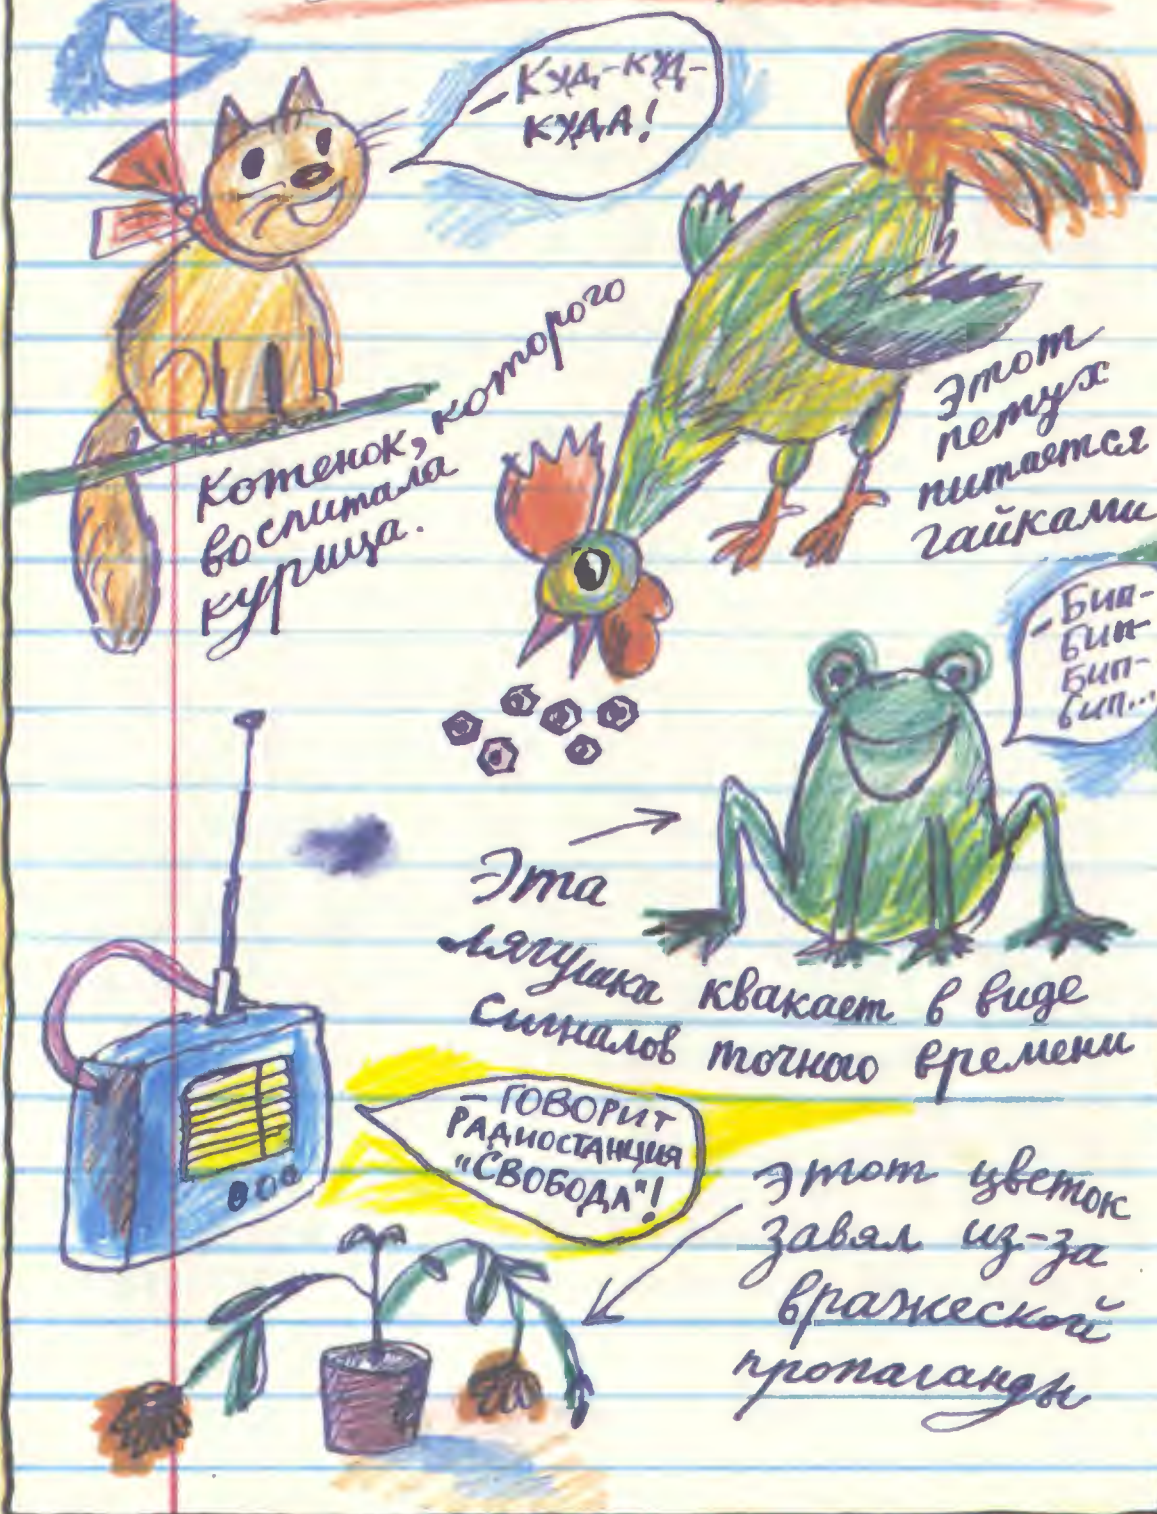 - Куд-куд-
куда!
Котенок, которого
воспитала
курица.
Этот
петух
питается
гайками
- Бип-
бип-
бип-
бип...
Эта
лягушка квакает в виде
сигналов точного времени
- ГОВОРИТ
РАДИОСТАНЦИЯ
"СВОБОДА"!
Этот цветок
завял из-за
вражеской
пропаганды